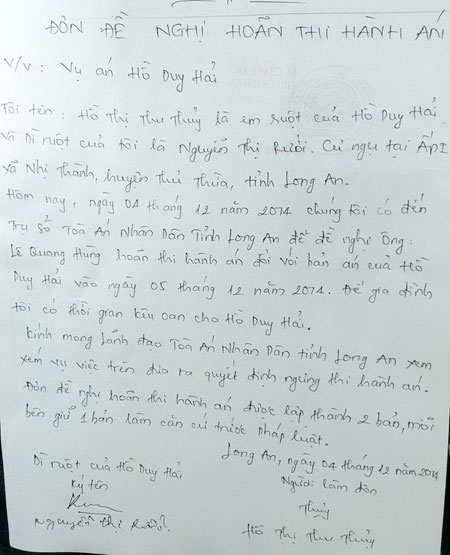 ĐƠN ĐỀ NGHỊ HOÃN THI HÀNH ÁN
V/v : Vụ án Hồ Duy Hải
Tôi tên : Hồ Thị Thu Thủy là em ruột của Hồ Duy Hải
Và Dì ruột của tôi là Nguyễn Thị Rưởi. Cư ngụ tại ẤP1
xã Nhị Thành, huyện Thủ Thừa, tỉnh Long An.
Hôm nay, ngày 04 tháng 12 năm 2014 chúng tôi có đến
Trụ sở Toà Án Nhân Dân Tỉnh Long An để đề nghị Ông :
Lê Quang Hùng hoãn thi hành án đối với bản án của Hồ
Duy Hải vào ngày 05 tháng 12 năm 2014. Để gia đình
tôi có thời gian kêu oan cho Hồ Duy Hải.
Kính mong Lãnh đạo Toà Án Nhân Dân tỉnh Long An xem
xem vụ việc trên đưa ra quyết định ngừng thi hành án.
Đơn đề nghị hoãn thi hành án được lập thành 2 bản, mỗi
bên giữ 1 bản làm căn cứ trước pháp luật.
Long An, ngày 04 tháng 12 năm 2014
Dì ruột của Hồ Duy Hải
Người làm đơn
Ký tên
Thủy
Nguyễn Thị Rưởi.
Hồ Thị Thu Thủy